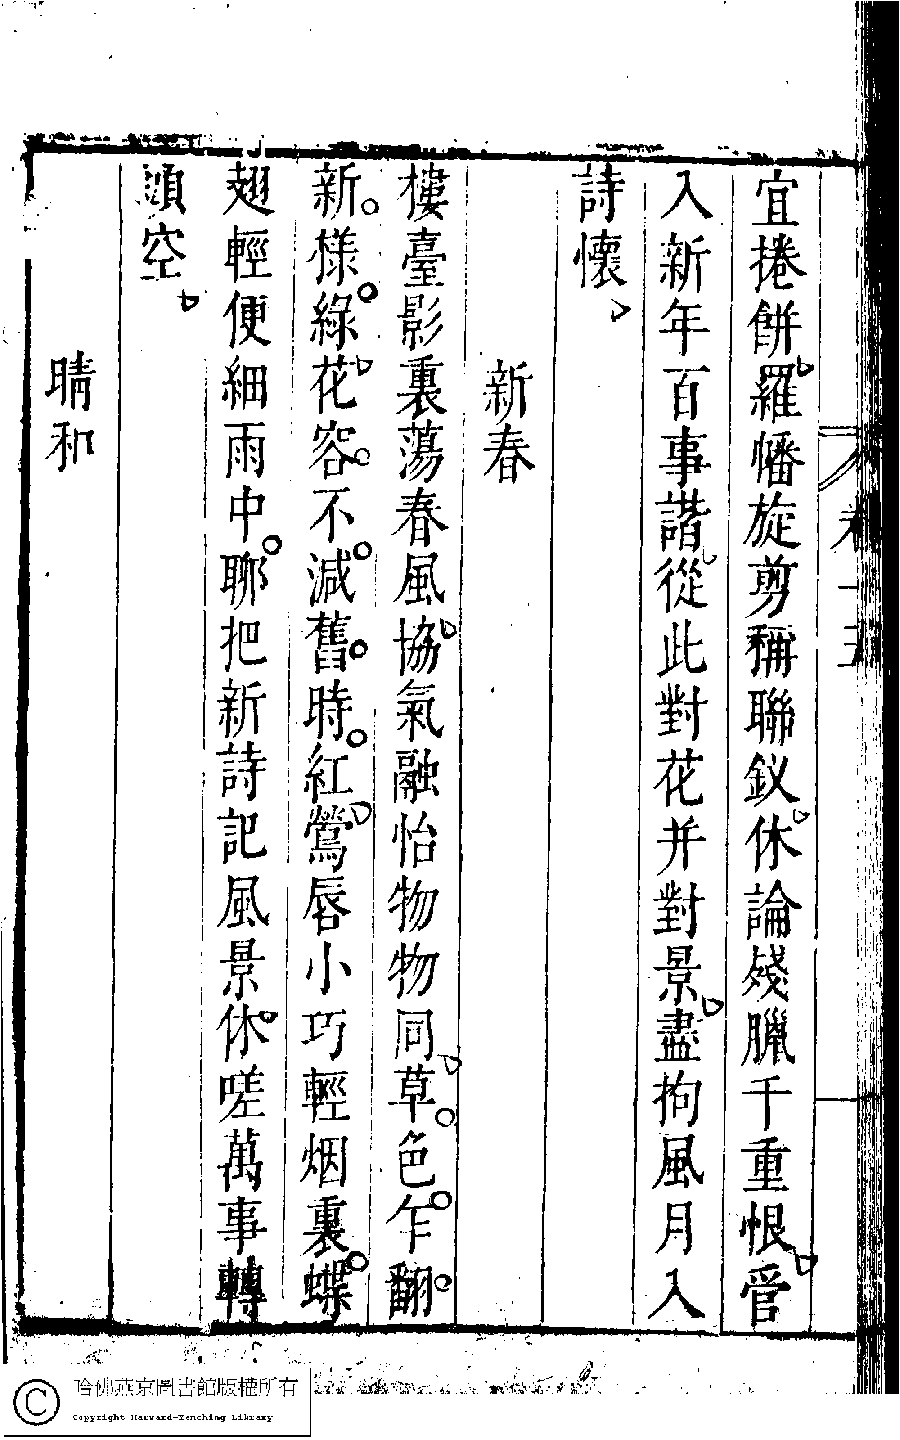 宜捲餠羅幡旋剪稱聯釵休論殘臘千重恨管
入新年百事諧從此對花并對景盡拘風月入
詩懷
新春
樓臺影裏蕩春風協氣融怡物物同草色乍翻
新様綠花容不減舊時紅鶯唇小巧輕烟裏蝶
翅輕便細雨中聊把新詩記風景休嗟萬事轉
頭空
晴和
哈佛燕京圖書館版權所有
Copyright Harvard-Yenching Library